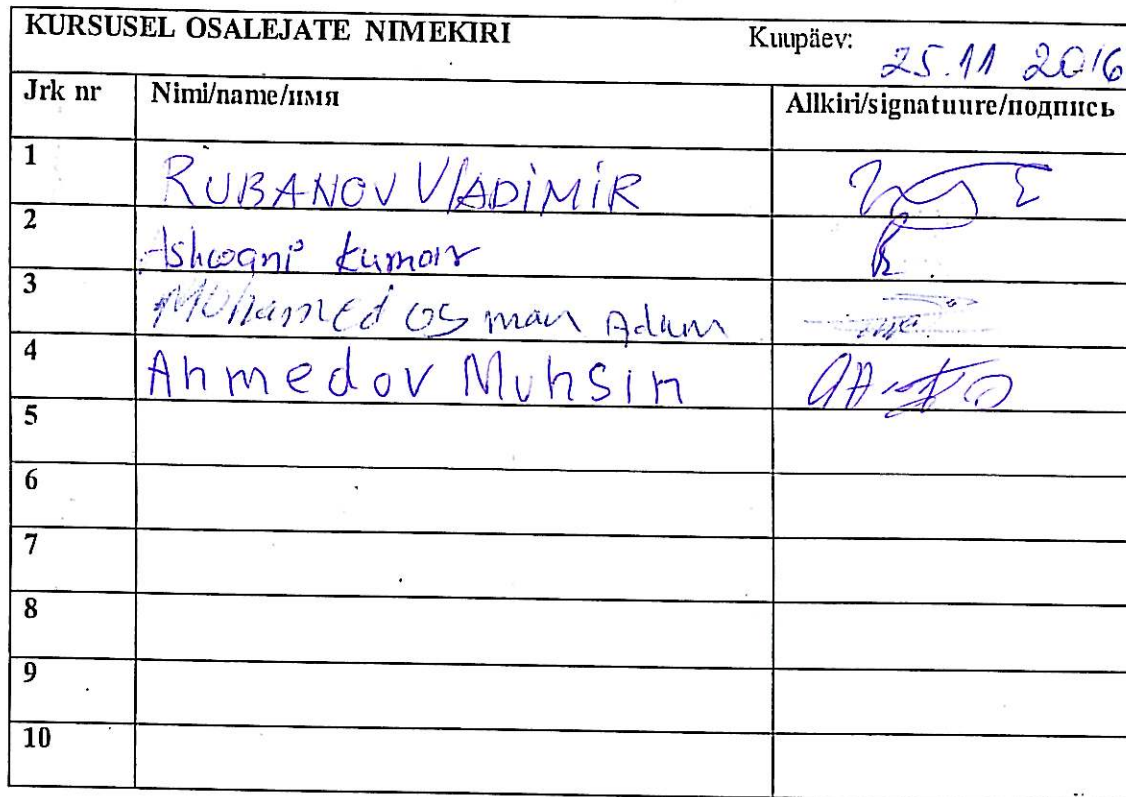 KURSUSEL OSALEJATE NIMEKIRI Kuupäev: 25.11 2016
Jrk nr Nimi/name/имя Allkiri/signatuure/подпись
1 RUBANOV VlADiMiR
2 Ashwani Kumar
3 Mohamed osman Adam
4 Ahmedov Muhsin
5
6
7
8
9
10